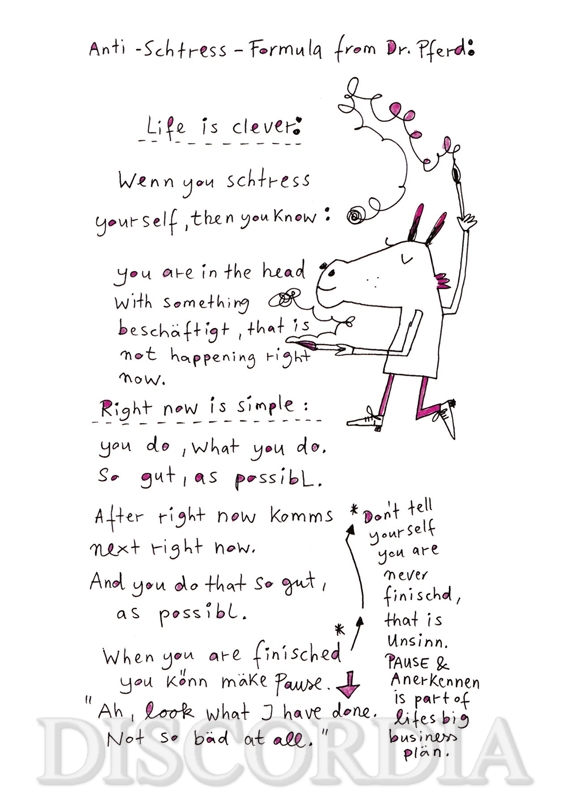 Anti-Schtress-Formula from Dr. Pferd:
Life is clever:
Wenn you schtress
yourself, then you know:
you are in the head
with something
beschäftigt, that is
not happening right
now.
Right now is simple:
you do, what you do.
So gut, as possibl.
After right now komms
next right now.
And you do that so gut,
as possibl.
When you are finisched *
you könn mäke Pause.
"Ah, look what I have done.
Not so bäd at all."
* Don't tell
yourself
you are
never
finischd,
that is
Unsinn.
PAUSE &
Anerkennen
is part of
lifes big
business
plän.
DISCORDIA